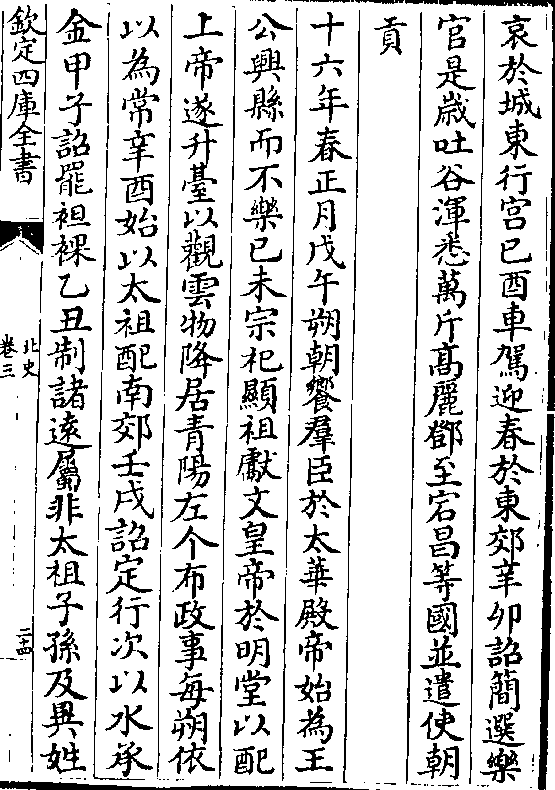 哀於城東行宮己酉車駕迎春於東郊辛卯詔簡選樂
官是歲吐谷渾悉萬斤髙麗鄧至宕昌等國並遣使朝
貢
十六年春正月戊午朔朝饗羣臣於太華殿帝始為王
公興縣而不樂己未宗祀顯祖獻文皇帝於明堂以配
上帝遂升臺以觀雲物降居青陽左个布政事每朔依
以為常辛酉始以太祖配南郊壬戌詔定行次以水承
金甲子詔罷袒裸乙丑制諸逺屬非太祖子孫及異姓
欽定四庫全書
北史
卷三
二十四